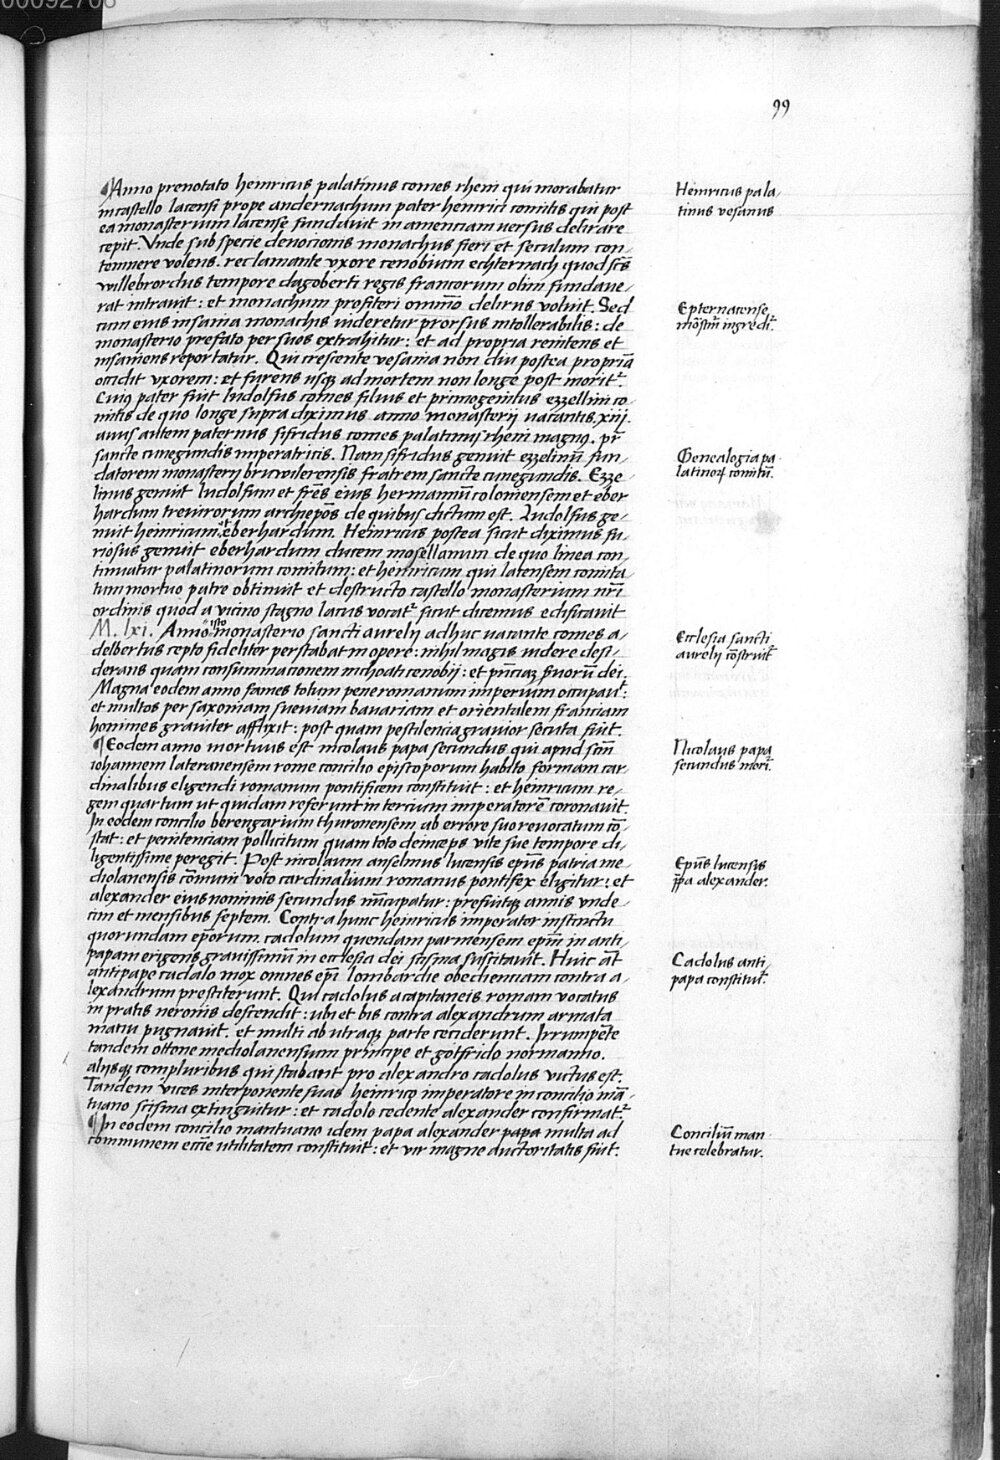 00092706
99
¶Anno prenotato heinricus palatinus comes rheni qui morabatur
in castello lacensi prope andernachum pater heinrici comitis qui post
ea monasterium lacense fundauit in amenciam uersus delirare
cepit. Vnde sub specie deuocionis monachus fieri et seculum con-
temnere volens. reclamante vxore cenobium echternach quod scūs
willebrordus tempore dagoberti regis francorum olim fundaue-
rat intrauit: et monachum profiteri omnīo delirus voluit. Sed
cum eius insania monachis uideretur prorsus intollerabilis: de
monasterio prefato per suos extrahitur: et ad propria renitens et
insaniens reportatur. Qui crescente vesania non diu postea propriā
occidit vxorem: et furens usqȝ ad mortem non longe post moritᷣ.
Cuiꝰ pater fuit ludolfus comes filius et primogenitus ezzelini co-
mitis de quo longe supra diximus anno monasterij vacantis .xiij.
auus autem paternus sifridus comes palatinus rheni magnꝰ. pr̄
sancte cunegundis imperatricis. Nam sifridus genuit ezzelinū fun-
datorem monasterij bruwilerensis fratrem sancte cunegundis. Ezze-
linus genuit ludolfum et fr̄es eius hermannū coloniensem et eber
hardum treuirorum archiepōs de quibus dictum est. Ludolfus ge-
nuit heinricum et eberhardum. Heinricus postea sicut diximus fu-
riosus genuit eberhardum ducem mosellanum de quo linea con-
tinuatur palatinorum comitum: et heinricum qui lacensem comita-
tum mortuo patre obtinuit et destructo castello monasterium nr̄i
ordinis quod a vicino stagno lacus vocatᷣ sicut dicemus edificauit
M. lxi. Anno isto monasterio sancti aurelij adhuc vacante comes a-
delbertus cepto fideliter perstabat in opere: nihil magis uidere desi-
derans quam consummacionem inchoati cenobij: et pn̄ciaȝ s̄uorū dei.
Magna eodem anno fames totum pene romanum imperium occupauit:
et multos per saxoniam sueuiam bauariam et orientalem franciam
homines grauiter afflixit: post quam pestilencia grauior secuta fuit.
¶Eodem anno mortuus est nicolaus papa secundus qui apud scm̄
iohannem lateranensem rome concilio episcoporum habito formam car-
dinalibus eligendi romanum pontificem constituit: et heinricum re-
gem quartum ut quidam referunt in tercium imperatorē coronauit.
In eodem concilio berengarium thuronensem ab errore suo reuocatum cō-
stat: et penitenciam pollicitum quam toto deinceps vite sue tempore di-
ligentissime peregit. Post nicolaum anselmus lucensis epūs patria me-
diolanensis cōmuni voto cardinalium romanus pontifex eligitur: et
alexander eius nominis secundus nūcupatur: prefuitqȝ annis unde-
cim et mensibus septem. Contra hunc heinricus imperator instinctu
quorundam ep̄orum. cadolum quendam parmensem ep̄m in anti-
papam erigens grauissimū in ecclesia dei scisma suscitauit. Huic aūt
antipape cadalo mox omnes ep̄i lombardie obedienciam contra a-
lexandrum prestiterunt. Qui cadolus a capitaneis romam vocatus
in pratis neronis descendit: ubi et bis contra alexandrum armata
manu pugnauit. et multi ab utraqȝ parte ceciderunt. Irrumpēte
tandem ottone mediolanensium principe et gotfrido normanno.
alijsqȝ compluribus qui stabant pro alexandro cadolus victus est.
Tandem vices interponente suas heinrico imperatore in concilio mā-
tuano scisma extinguitur: et cadolo cedente alexander confirmatᷣ.
¶In eodem concilio mantuano idem papa alexander papa multa ad
communem eccīe utilitatem constituit: et vir magne auctoritatis fuit.
Heinricus pala-
tinus vesanus
Epternacense
mōstm̄ ingreditᷣ.
Genealogia pa-
latinoꝝ comitū.
Ecclesia sancti
aurelij cōstruitᷣ
Nicolaus papa
secundus moritᷣ.
Epūs lucensis
ꝓpa alexander.
Cadolus anti-
papa constituitᷣ.
Conciliū man-
tue celebratur.